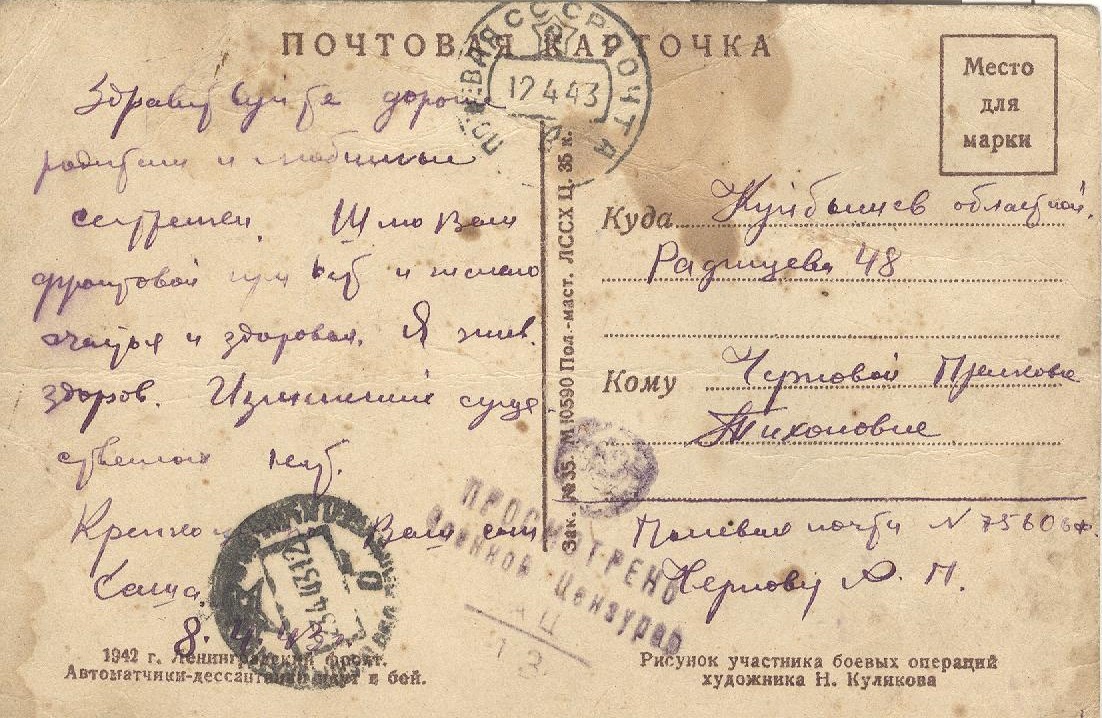 ПОЧТОВАЯ КАРТОЧКА
ПОЛЕВАЯ СССР ПОЧТА
12 4 43
Место
для
марки
Здравствуйте дорогие
родители и любимые
сестренки. Шлю Вам
фронтовой привет и желаю
счастья и здоровья. Я жив.
здоров. Изменений суще
ственных нет.
Крепко Ваш сын
Саша.
8. 4. 43 г.
1942 г. Ленинградский фронт.
Автоматчики-дессантники идут в бой.
Зак. № 35. М 10590 Пол.-маст. ЛССХ Ц. 35 к.
Куда Куйбышев областной,
Радищева 48
Кому Черновой
Тихоновне
Полевая почта N 75606 ф.
Чернову А. П.
ПРОСМОТРЕНО
Военной Цензурой
Рисунок участника боевых операций
художника Н. Кулякова